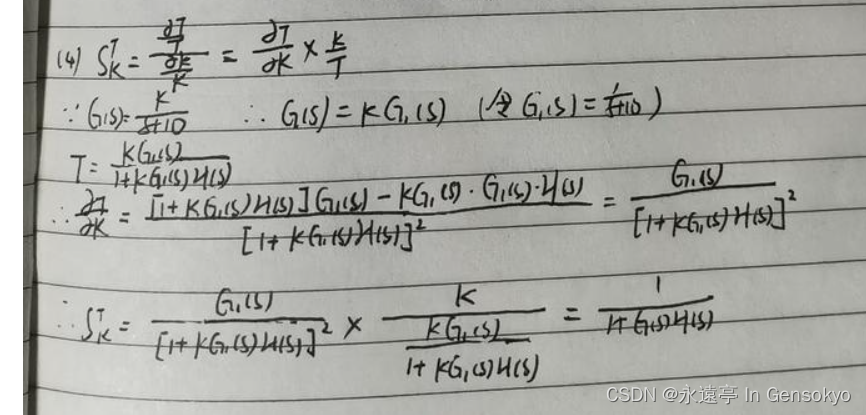 (4) S_K^T = (∂T/T)/(∂K/K) = ∂T/∂K × K/T
∵ G(s) = K/(s+10) ∴ G(s) = KG₁(s) (令 G₁(s) = 1/(s+10))
T = KG₁(s)/(1+KG₁(s)H(s))
∴ ∂T/∂K = ([1+KG₁(s)H(s)]G₁(s) − KG₁(s)·G₁(s)·H(s))/[1+KG₁(s)H(s)]² = G₁(s)/[1+KG₁(s)H(s)]²
∴ S_K^T = G₁(s)/[1+KG₁(s)H(s)]² × K/(KG₁(s)/(1+KG₁(s)H(s))) = 1/(1+G(s)H(s))
CSDN @永遠亭 In Gensokyo